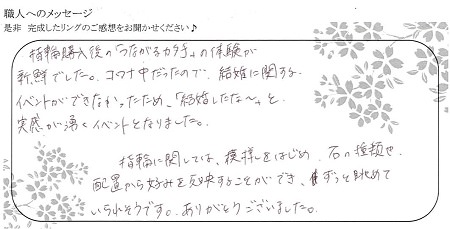 職人へのメッセージ
是非 完成したリングのご感想をお聞かせください♪
指輪購入後の「つながるカタチ」の体験が
新鮮でした。コロナ中だったので、結婚に関する
イベントができなかったため、「結婚したな〜」と
実感が湧くイベントとなりました。
指輪に関しては、模様をはじめ、石の種類や
配置から好みを反映することができ、ずっと眺めて
いられそうです。ありがとうございました。